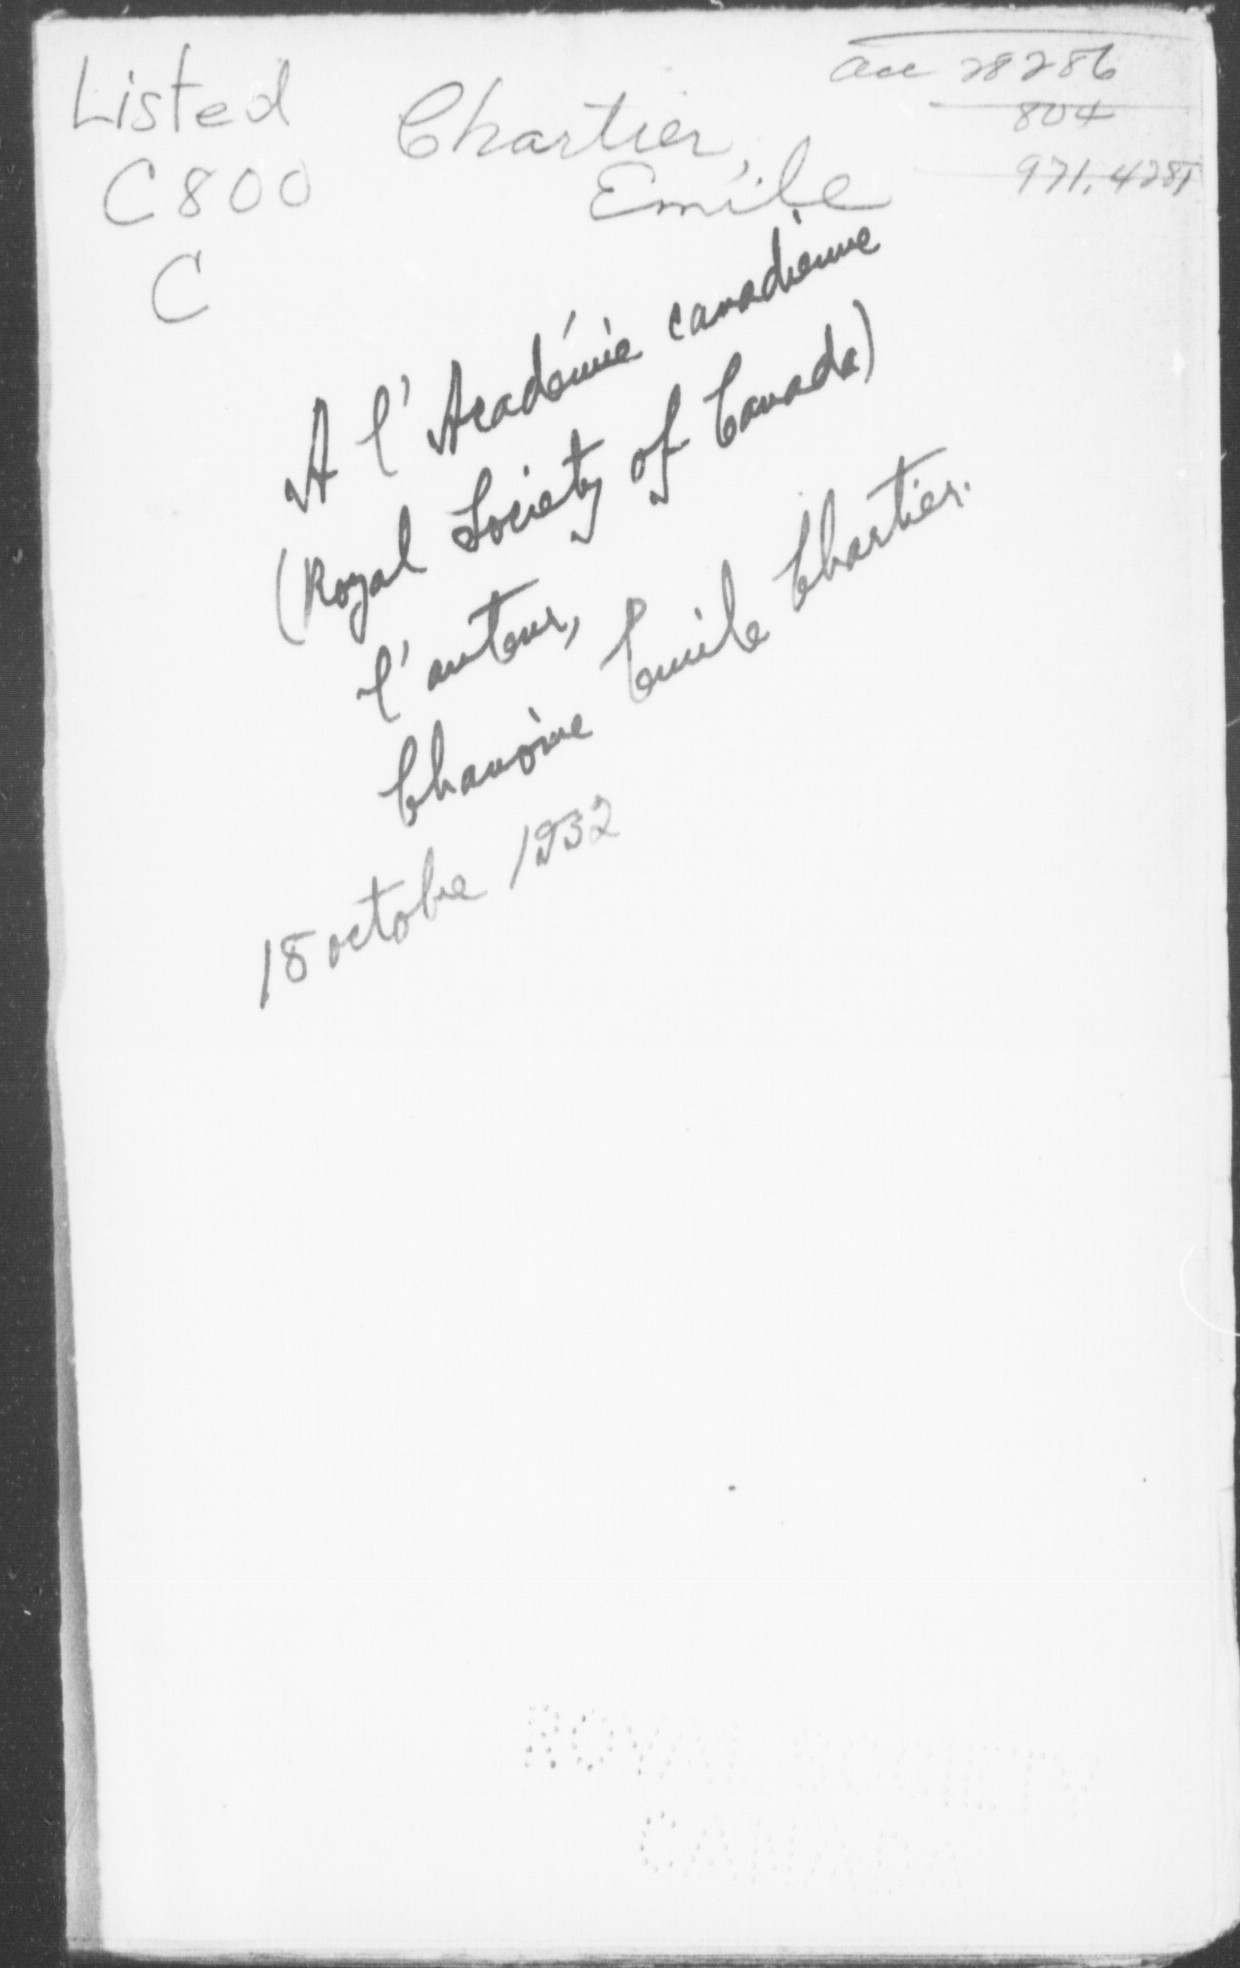 acc 28286
804
971.4281
Listed
C800
C
Chartier,
Emile
A l'Académie canadienne
(Royal Society of Canada)
l'auteur,
Chanoine Emile Chartier.
18 octobre 1932
ROYAL SOCIETY
CANADA